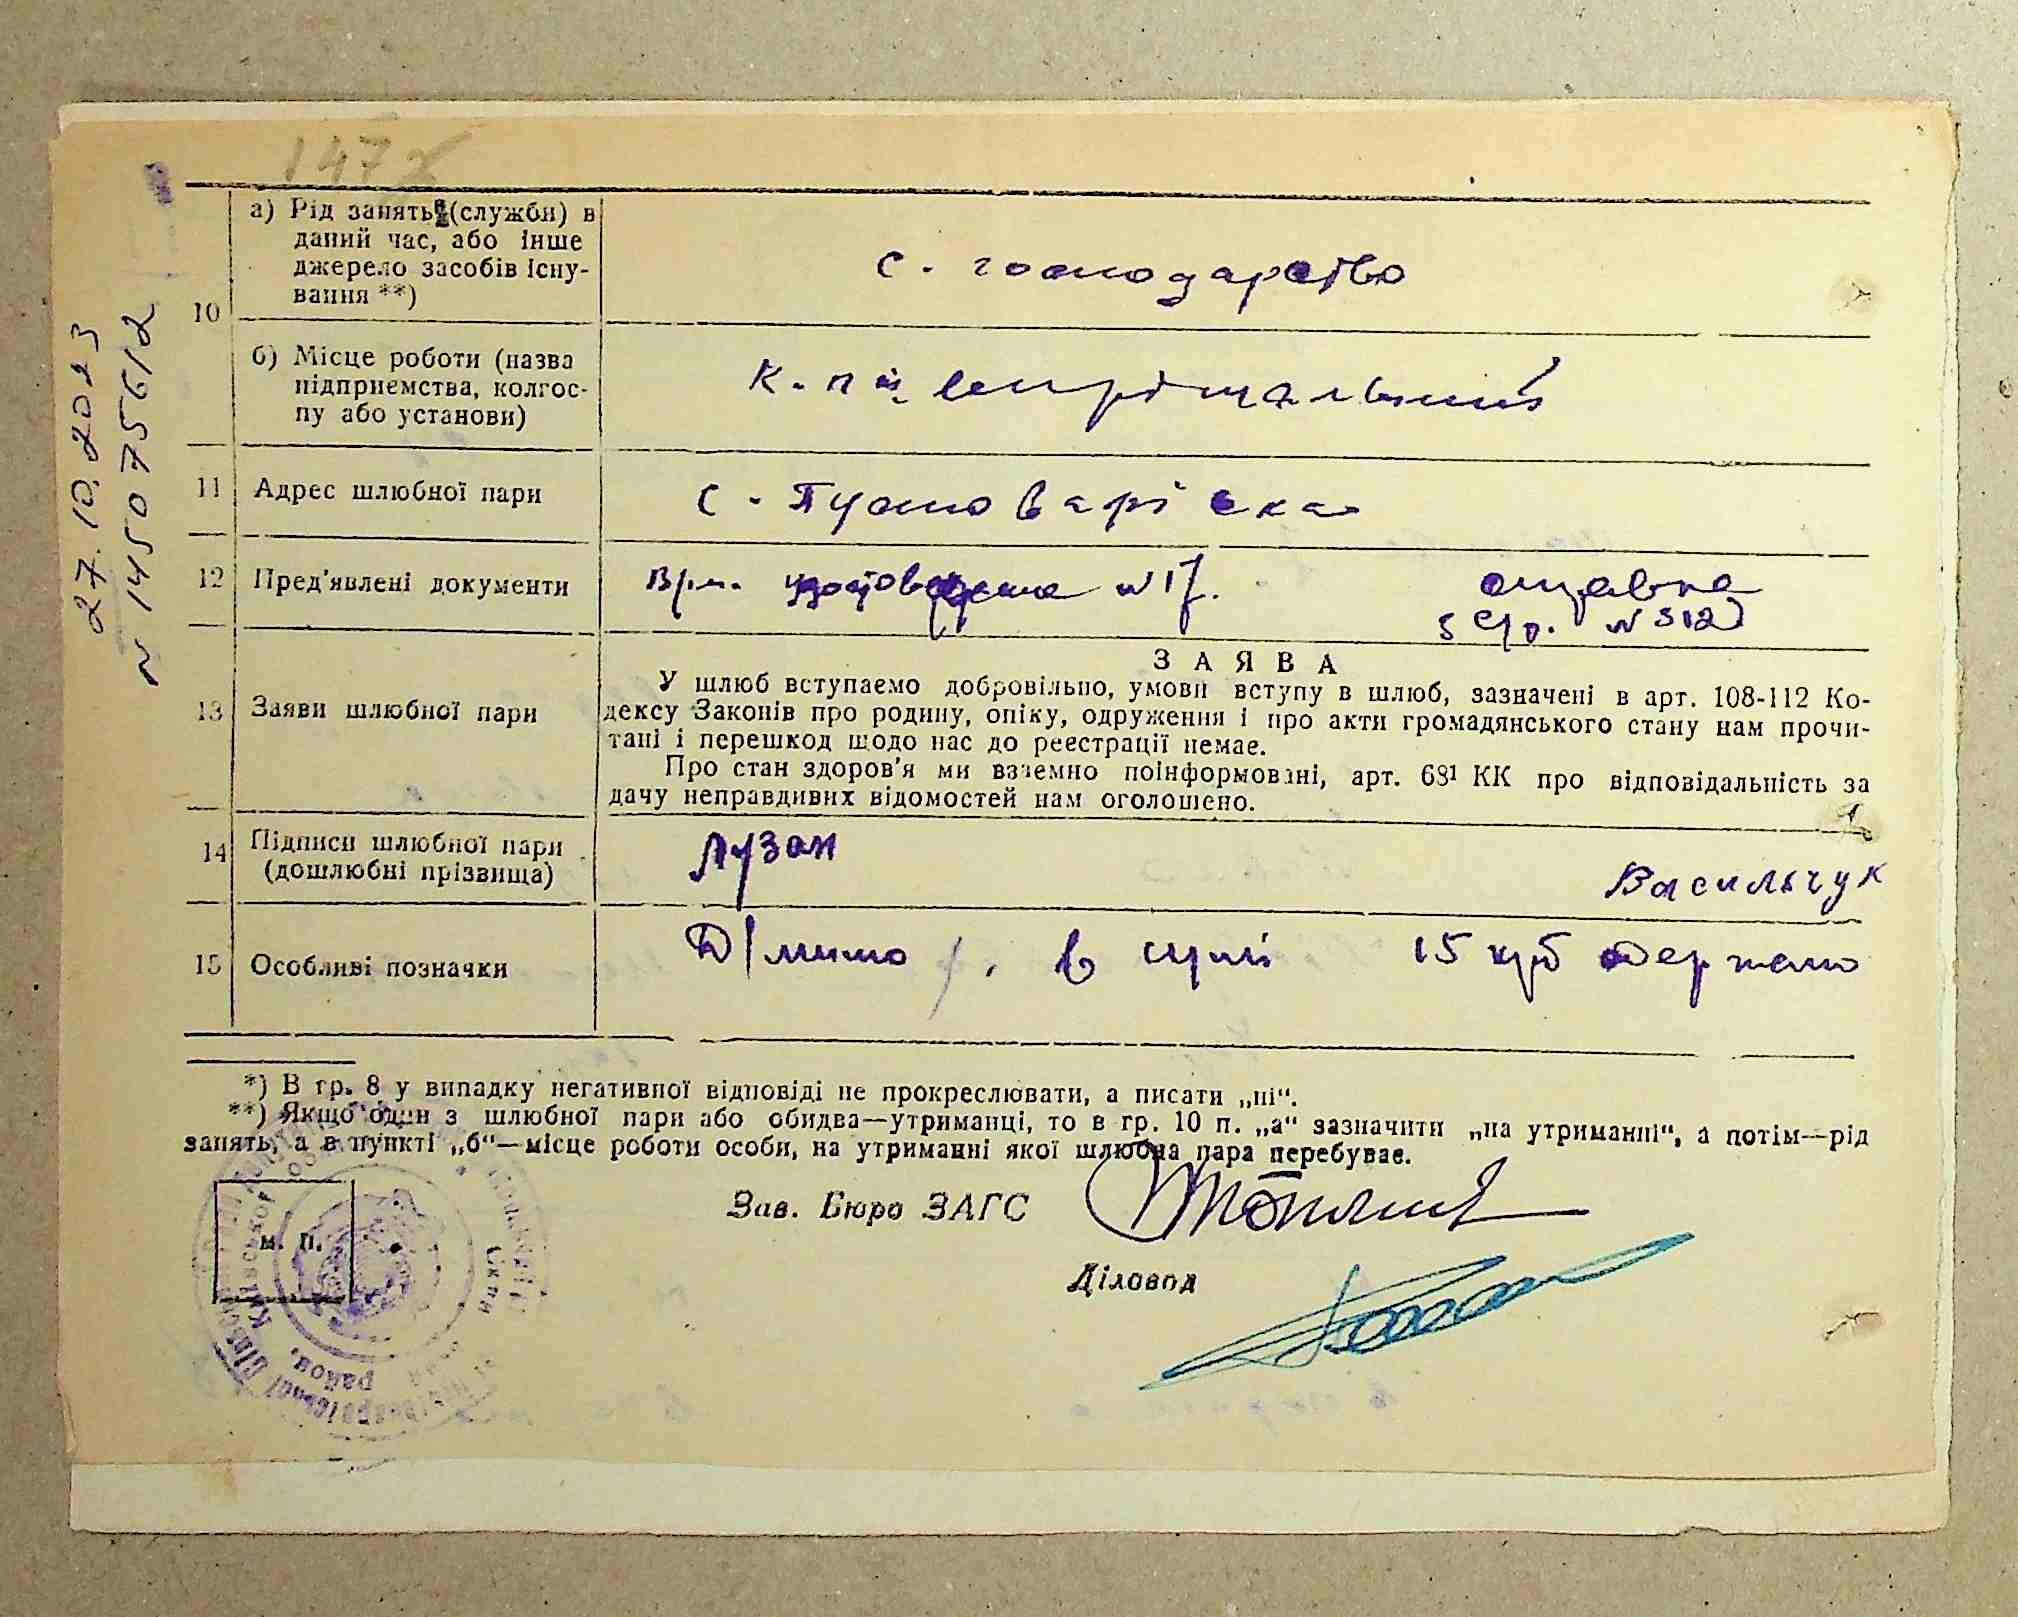 147
27.10.2023
N 14507 75612
10
а) Рід занять (служби) в
даний час, або інше
джерело засобів існу-
вання **)
с. господарство
б) Місце роботи (назва
підприємства, колгос-
пу або установи)
11 Адрес шлюбної пари
с. Пустоварівка
12 Пред'явлені документи
N 17.
N 312
13 Заяви шлюбної пари
ЗАЯВА
У шлюб вступаємо добровільно, умови вступу в шлюб, зазначені в арт. 108-112 Ко-
дексу Законів про родину, опіку, одруження і про акти громадянського стану нам прочи-
тані і перешкод щодо нас до реєстрації немає.
Про стан здоров'я ми взаємно поінформовані, арт. 68¹ КК про відповідальність за
дачу неправдивих відомостей нам оголошено.
14 Підписи шлюбної пари
(дошлюбні прізвища)
Лузан
Васильчук
15 Особливі позначки
в сумі 15 крб одержано
*) В гр. 8 у випадку негативної відповіді не прокреслювати, а писати „ні“.
**) Якщо один з шлюбної пари або обидва—утриманці, то в гр. 10 п. „а“ зазначити „на утриманні“, а потім—рід
занять, а в пункті „б“—місце роботи особи, на утриманні якої шлюбна пара перебуває.
м. п.
Київської
район.
Зав. Бюро ЗАГС
Діловод